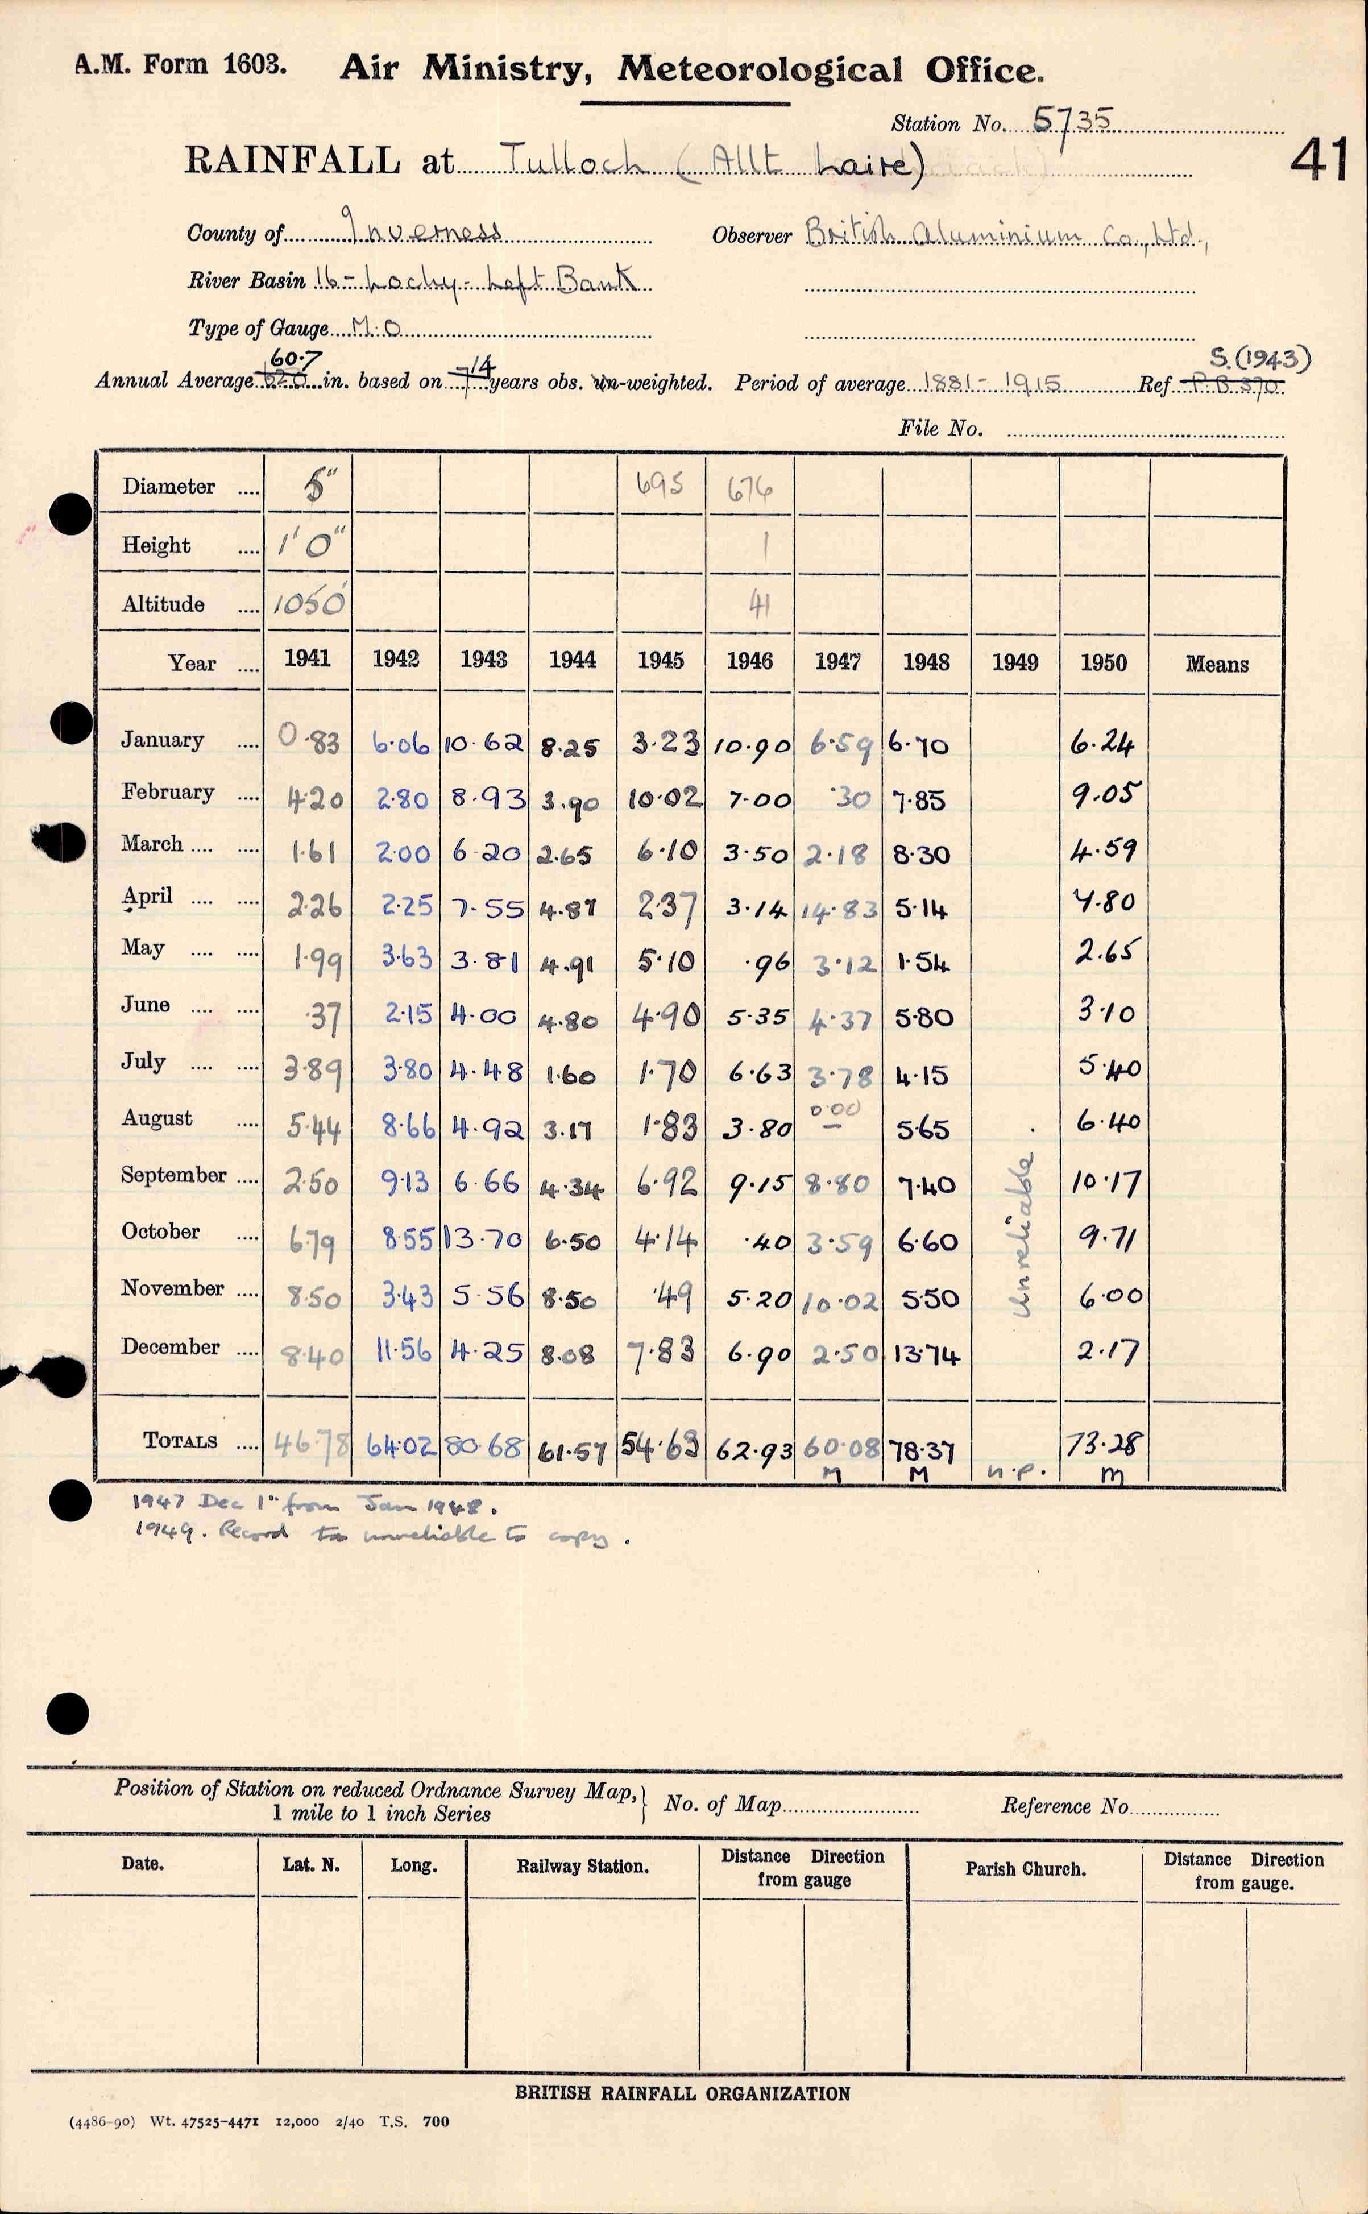 A.M. Form 1603. Air Ministry, Meteorological Office.
Station No. 5735
41
RAINFALL at Tulloch (Allt Laire)
County of Inverness Observer British Aluminium Co., Ltd.,
River Basin 16 - Lochy - Left Bank
Type of Gauge M.O
60.7 14 S.(1943)
Annual Average 62.0 in. based on 7 years obs. un-weighted. Period of average 1881 - 1915 Ref P.B 370.
File No.
Diameter .... 5" 695 676
Height .... 1' 0" 1
Altitude .... 1050' 41
Year .... 1941 1942 1943 1944 1945 1946 1947 1948 1949 1950 Means
January .... 0.83 6.06 10.62 8.25 3.23 10.90 6.59 6.70 6.24
February .... 4.20 2.80 8.93 3.90 10.02 7.00 .30 7.85 9.05
March .... .... 1.61 2.00 6.20 2.65 6.10 3.50 2.18 8.30 4.59
April .... .... 2.26 2.25 7.55 4.87 2.37 3.14 14.83 5.14 4.80
May .... .... 1.99 3.63 3.81 4.91 5.10 .96 3.12 1.54 2.65
June .... .... .37 2.15 4.00 4.80 4.90 5.35 4.37 5.80 3.10
July .... .... 3.89 3.80 4.48 1.60 1.70 6.63 3.78 4.15 5.40
August .... 5.44 8.66 4.92 3.17 1.83 3.80 0.00 — 5.65 6.40
September .... 2.50 9.13 6.66 4.34 6.92 9.15 8.80 7.40 Unreliable 10.17
October .... 6.79 8.55 13.70 6.50 4.14 .40 3.59 6.60 9.71
November .... 8.50 3.43 5.56 8.50 .49 5.20 10.02 5.50 6.00
December .... 8.40 11.56 4.25 8.08 7.83 6.90 2.50 13.74 2.17
TOTALS .... 46.78 64.02 80.68 61.57 54.63 62.93 60.08 78.37 73.28
M M n.p. m
1947 Dec 1" from Jan 1948.
1949. Record too unreliable to copy.
Position of Station on reduced Ordnance Survey Map,} No. of Map Reference No.
1 mile to 1 inch Series
Date. Lat. N. Long. Railway Station. Distance Direction from gauge Parish Church. Distance Direction from gauge.
BRITISH RAINFALL ORGANIZATION
(4486-90) Wt. 47525-4471 12,000 2/40 T.S. 700